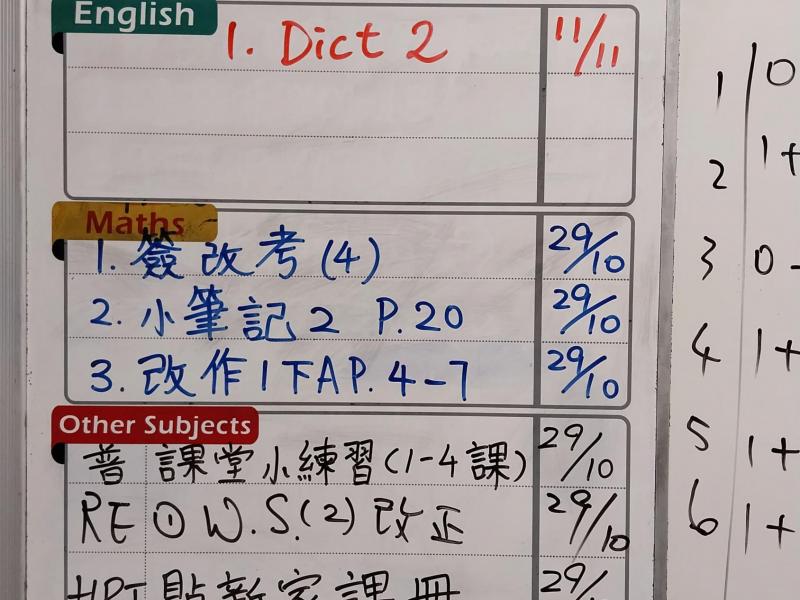 English
1. Dict 2 11/11
Maths
1. 簽改考(4) 29/10
2. 小筆記2 P.20 29/10
3. 改作1下A P.4-7 29/10
Other Subjects
普 課堂小練習(1-4課) 29/10
RE ① W.S.(2) 改正 29/10
貼新家課冊 29/
1 0
2 1+
3 0-
4 1+
5 1+
6 1+